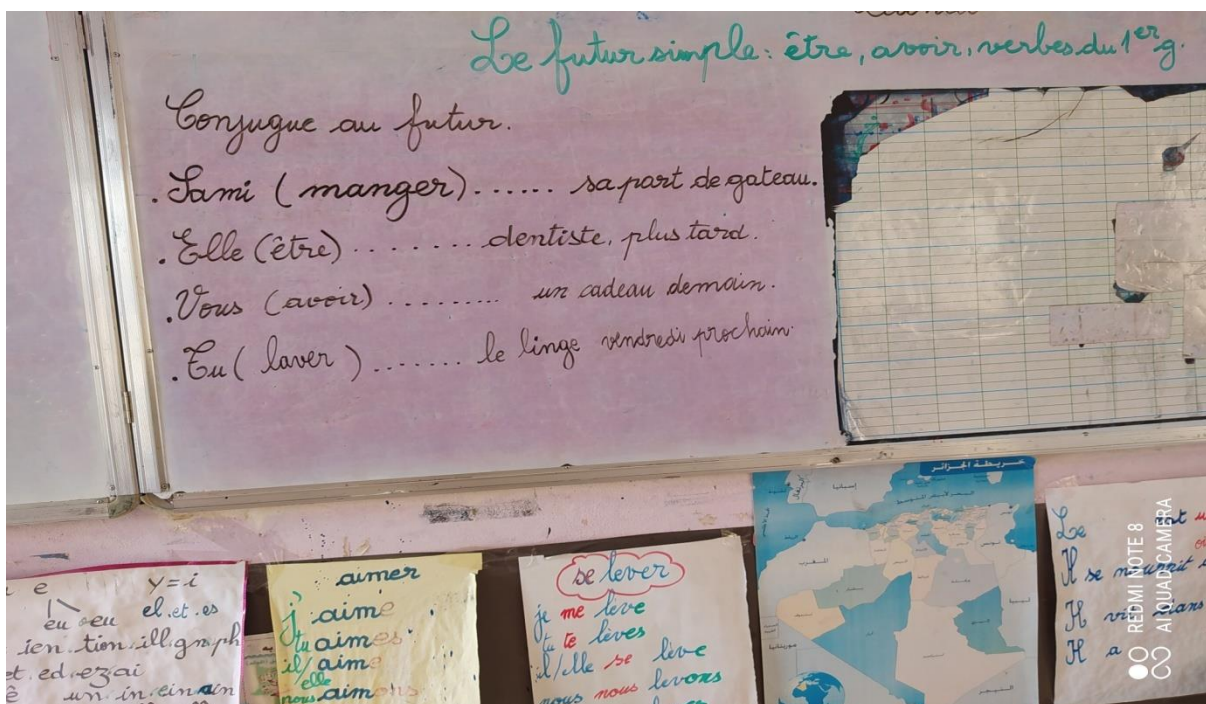 Le futur simple: être, avoir, verbes du 1er g.
Conjugue au futur.
. Sami (manger) ...... sa part de gateau.
. Elle (être) ......... dentiste, plus tard.
. Vous (avoir) ......... un cadeau demain.
. Tu ( laver ) ....... le linge vendredi prochain.
e y=i
eu oeu el.et.es
ien.tion.ill.gn.ph
et.ed.ez.ai
un.in.ein.ain
aimer
j'aime
tu aimes
il/aime
elle
nous aimons
se lever
je me lève
tu te lèves
il/elle se lève
nous nous levons
خريطة الجزائر
إسبانيا
البحر الأبيض المتوسط
المغرب
تونس
ليبيا
موريتانيا
النيجر
Le
Il se nourrit
Il vit dans
Il a
REDMI NOTE 8
AI QUAD CAMERA